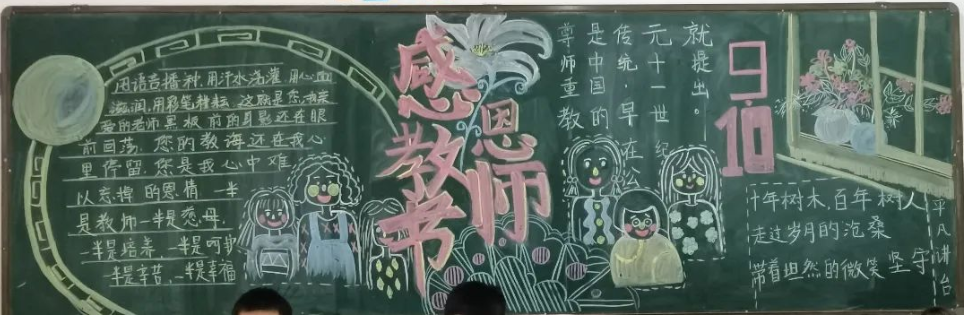 用语言播种,用汗水浇灌,用心血
滋润,用彩笔耕耘,这就是您,我亲
爱的老师 黑板前的身影还在眼
前回荡,您的教海还在我心
里停留.您是我心中难
以忘掉的恩情.一半
是教师一半是慈母.
一半是培养,一半是呵护
一半是辛苦,一半是幸福
感恩
教师
节
尊师重教的
是中国
传统.早在公
元十一世纪
就提出。
9.10
十年树木,百年树人
走过岁月的沧桑
带着坦然的微笑坚守
平凡讲台